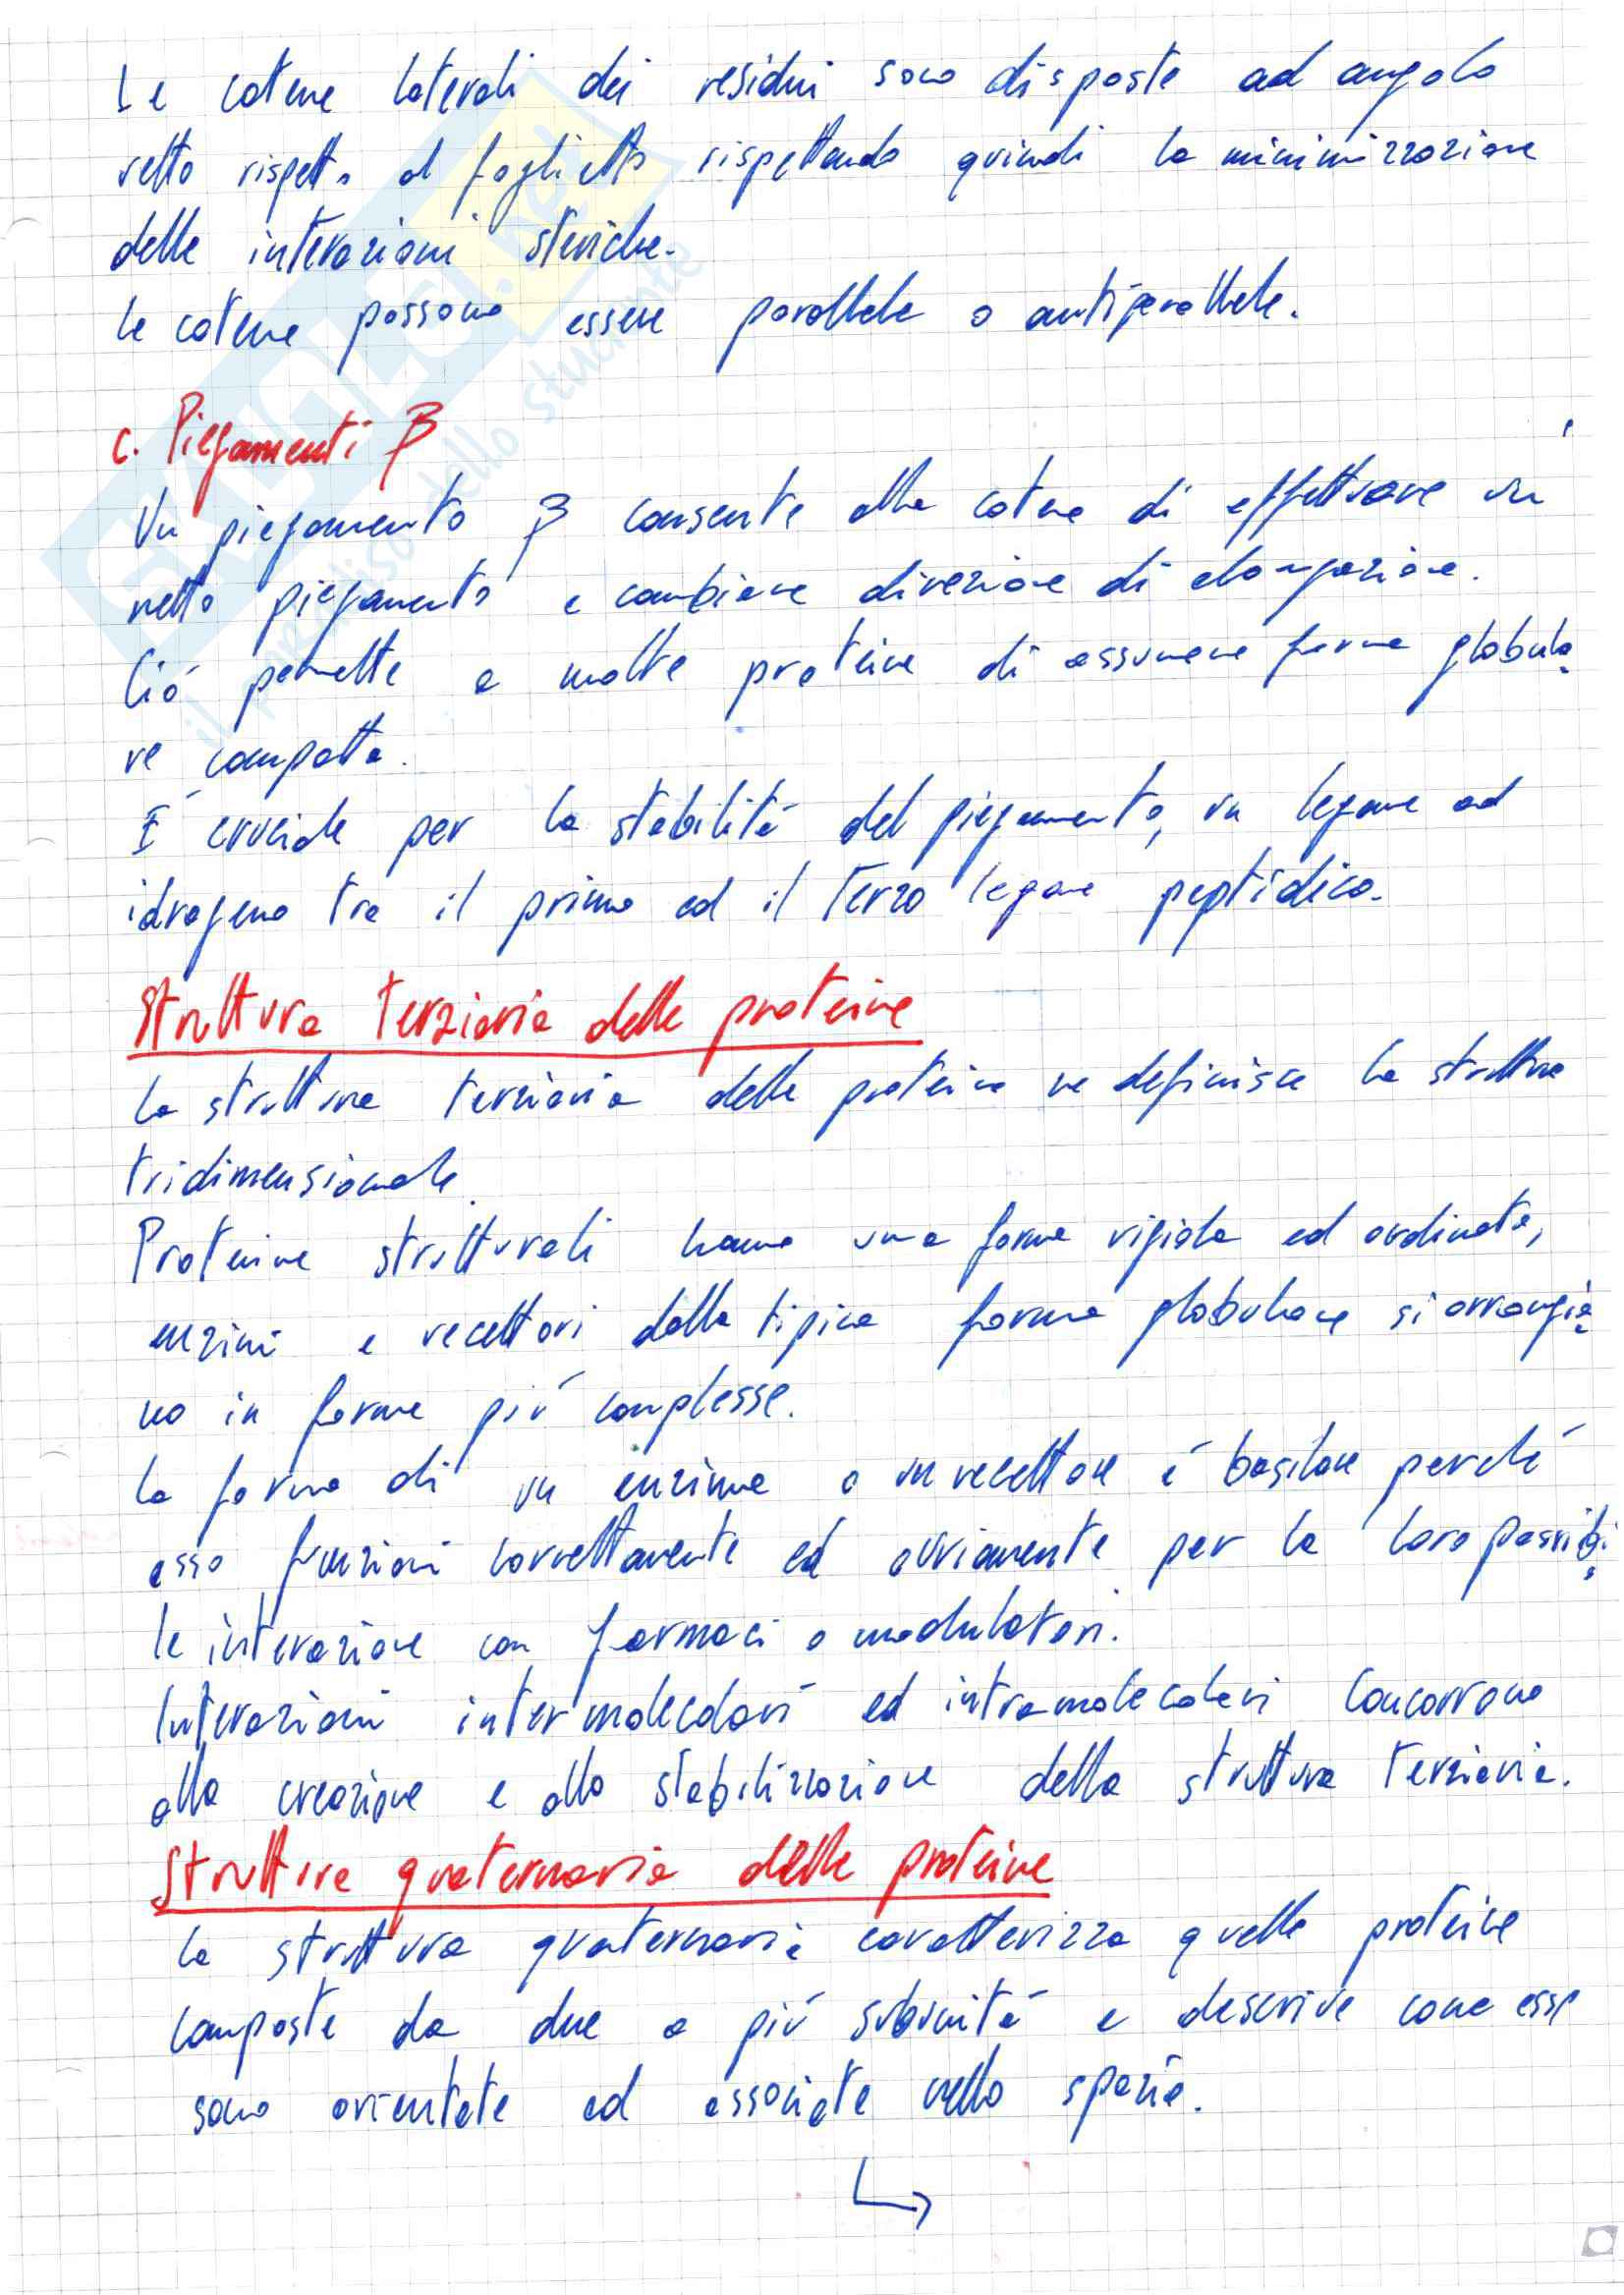 Le catene laterali dei residui sono disposte ad angolo
retto rispetto al foglietto rispettando quindi la minimizzazione
delle interazioni steriche.
Le catene possono essere parallele o antiparallele.
c. Piegamenti β
Un piegamento β consente alla catena di effettuare un
netto piegamento e cambiare direzione di elongazione.
Ció permette a molte proteine di assumere forma globula
re compatta.
É cruciale per la stabilitá del piegamento, un legame ad
idrogeno tra il primo ed il terzo legame peptidico.
Struttura terziaria delle proteine
La struttura terziaria delle proteine ne definisce la struttura
tridimensionale.
Proteine strutturali hanno una forma rigida ed ordinata,
enzimi e recettori dalla tipica forma globulare si arrangia
no in forme piú complesse.
La forma di un enzima o un recettore é basilare perché
esso funzioni correttamente ed ovviamente per la loro possibi
le interazione con farmaci o modulatori.
Interazioni intermolecolari ed intramolecolari concorrono
alla creazione e alla stabilizzazione della struttura terziaria.
Struttura quaternaria delle proteine
La struttura quaternaria caratterizza quelle proteine
composte da due o piú subunitá e descrive come esse
sono orientate ed associate nello spazio.
SKUOLA.net
il paradiso dello studente